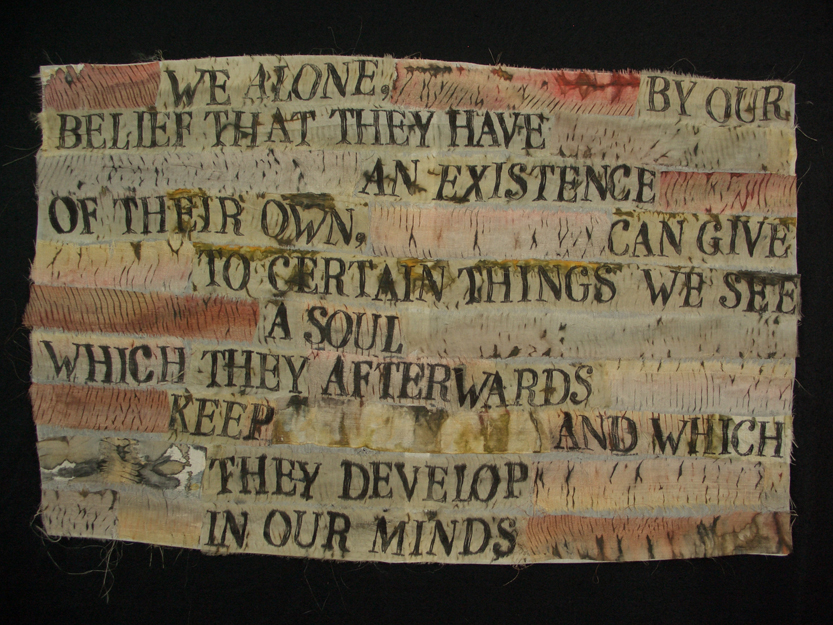 WE ALONE, BY OUR
BELIEF THAT THEY HAVE
AN EXISTENCE
OF THEIR OWN, CAN GIVE
TO CERTAIN THINGS WE SEE
A SOUL
WHICH THEY AFTERWARDS
KEEP AND WHICH
THEY DEVELOP
IN OUR MINDS